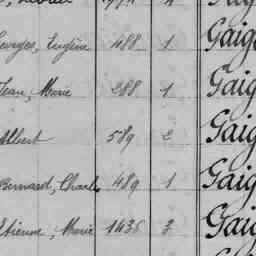 Georges, Eugène 488 1 Gaig
Jean, Marie 288 1 Gaig
Albert 589 2 Gaig
Bernard, Charles 489 1 Gaig
Etienne, Marie 1436 3 Gaig